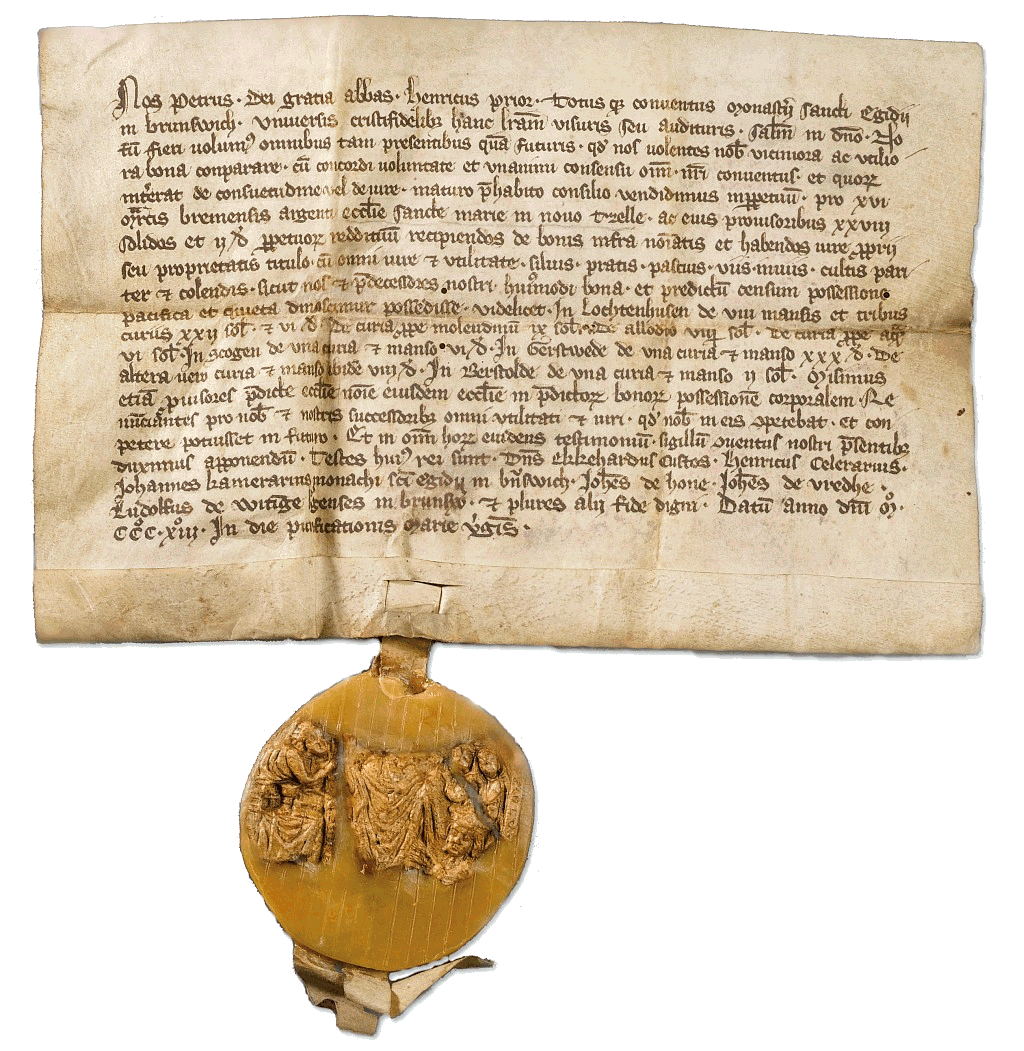 Nos Petrus · dei gratia abbas · Henricus prior · Totus q3 conventus monasterij sancti Egidij
in brunswich · Universis cristifidelib3 hanc lr̄am visuris seu audituris · Salt̄m in dn̄o · No
tū fieri volum9 omnibus tam presentibus quā futuris · qd̄ nos volentes nob̄ viciniora ac utilio
ra bona conparare · cū concordi voluntate et unanimi consensu om̄i · nr̄i conventus · et quorꝝ
int̄erat de consuetudine vel de iure · maturo p̄habito consilio vendidimus inꝑpetuū · pro xvi
mr̄cis bremensis argenti eccl̄ie sancte marie in novo tzelle · ac eius provisoribus xxviii
solidos et ij đ ꝑpetuorꝝ reddituū recipiendos de bonis infra nōiatis et habendos iure ꝓprij
seu proprietatis titulo · cū omni iure ⁊ utilitate · silvis · pratis · pascuis · viis · inviis · cultis pari
ter ⁊ colendis · sicut nos ⁊ p̄decessores nostri · hui9modi bona · et predictū censum possessione
pacifica et quieta dinoscimur possedisse · videlicet · In Lochtenhusen de viii mansis et tribus
curiis xxii sol̄ · ⁊ vi đ · De curia ꝓpe molendinū ix sol̄ · De allodio viij sol̄ · De curia ꝓpe aq̄
vi sol̄ · In scogen de una curia ⁊ manso · vi đ · In Gerstwede de una curia ⁊ manso xxx đ · De
altera curia ⁊ manso ibidē viij đ · In Berstolde de una curia ⁊ manso ii sol̄ · Misimus
etiā ꝓvisores p̄dicte eccl̄ie nōie eiusdem eccl̄ie in p̄dictorꝝ bonorꝝ possessionē corporalem · Re
nūciantes pro nob̄ ⁊ nostris successorib3 omni utilitati ⁊ iuri · qd̄ nob̄ in eis 9petebat · et con
petere potuisset in futuro · Et in om̄i horꝝ evidens testimoniū · sigillū 9ventus nostri p̄sentib3
duximus apponendū · Testes hui9 rei sunt · Dn̄s Ekkehardus Custos · Henricus Celerarius ·
Johannes kamerarius monachi sct̄i Egidij in br̄nswich · Joh̄es de hone · Joh̄es de vredhe ·
Ludolfus de · in brunswic · ⁊ plures alij fide digni · Datū anno dn̄i M ·
CCC · xiii · In die purificationis Marie v̄gīs ·